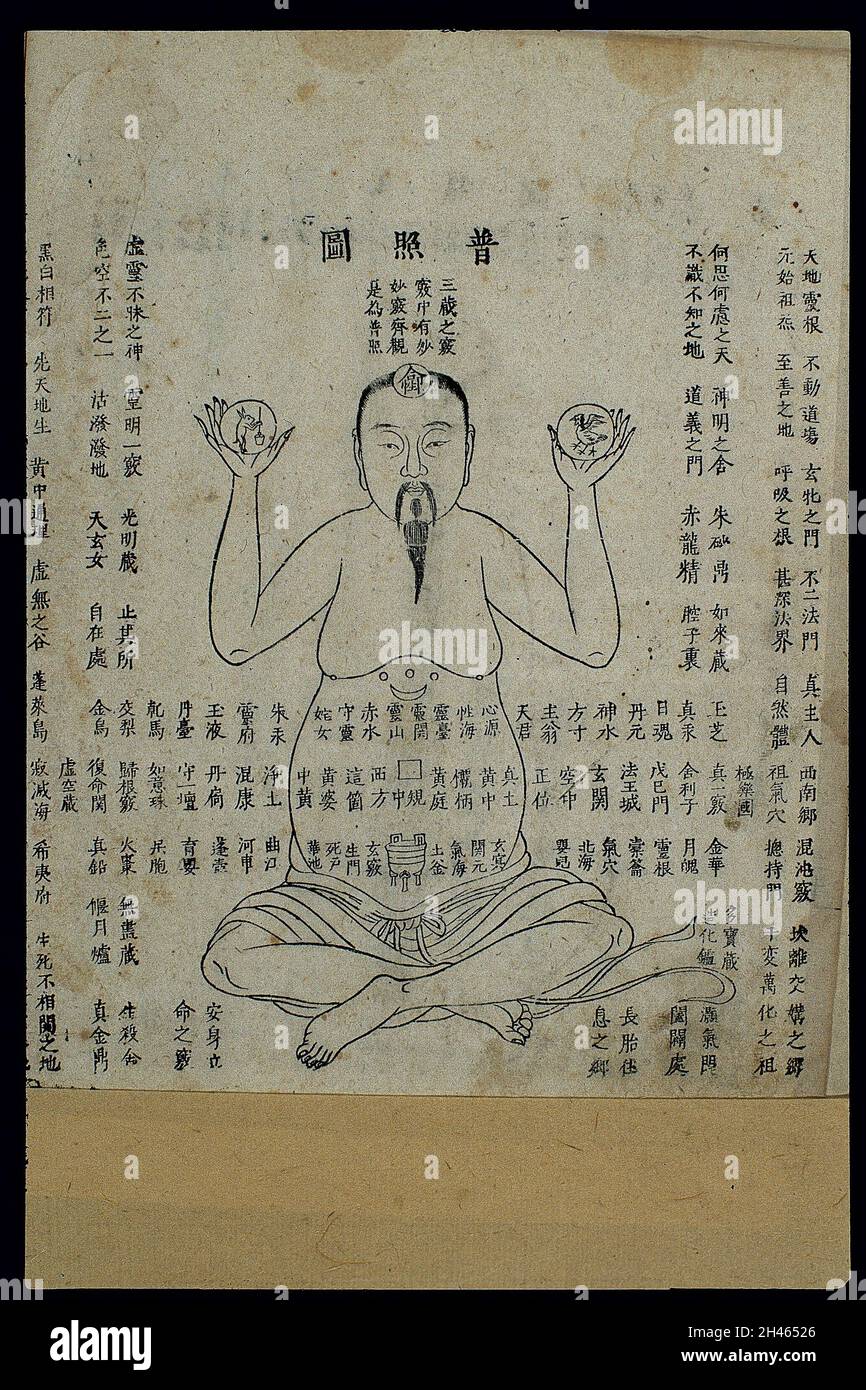 普照圖
三藏之竅
竅中有妙
妙竅齊觀
是為普照
天地靈根 不動道場 玄牝之門 不二法門 真主人 西南鄉 混沌竅 坎離交媾之鄉
元始祖炁 至善之地 呼吸之根 甚深法界 自然體 祖氣穴 總持門 千變萬化之祖
極樂國
何思何慮之天 神明之舍 朱砂鼎 如來藏 玉芝 真一竅 金華 多寶藏 灝氣門
不識不知之地 道義之門 赤龍精 腔子裏 真汞 舍利子 月魄 造化爐 闔闢處
日魂 戊己門 靈根 長胎住
丹元 法王城 氣穴 息之鄉
神水 玄關 北海
方寸 空中 嬰兒
主翁 正位
天君
心源 真土 玄竅
性海 黃中 關元
靈臺 欛柄 氣海
靈關 黃庭 土釜
規中
靈山 西方 玄竅
赤水 這箇 生門
守靈 黃婆 死戶
姹女 中黃 華池
朱汞 淨土 曲江
靈府 混康 河車
玉液 丹扃 蓬壺
丹臺 守一壇 育嬰
乾馬 如意珠 安身立
命之竅
虛靈不昧之神 靈明一竅 光明藏 止其所 交梨 歸根竅 火棗 無盡藏 生殺舍
色空不二之一 活潑潑地 天玄女 自在處 金烏 復命關 真鉛 偃月爐 真金鼎
虛空藏
黑白相符 先天地生 黃中通理 虛無之谷 蓬萊島 寂滅海 希夷府 生死不相關之地
alamy
Image ID: 2H46526
www.alamy.com